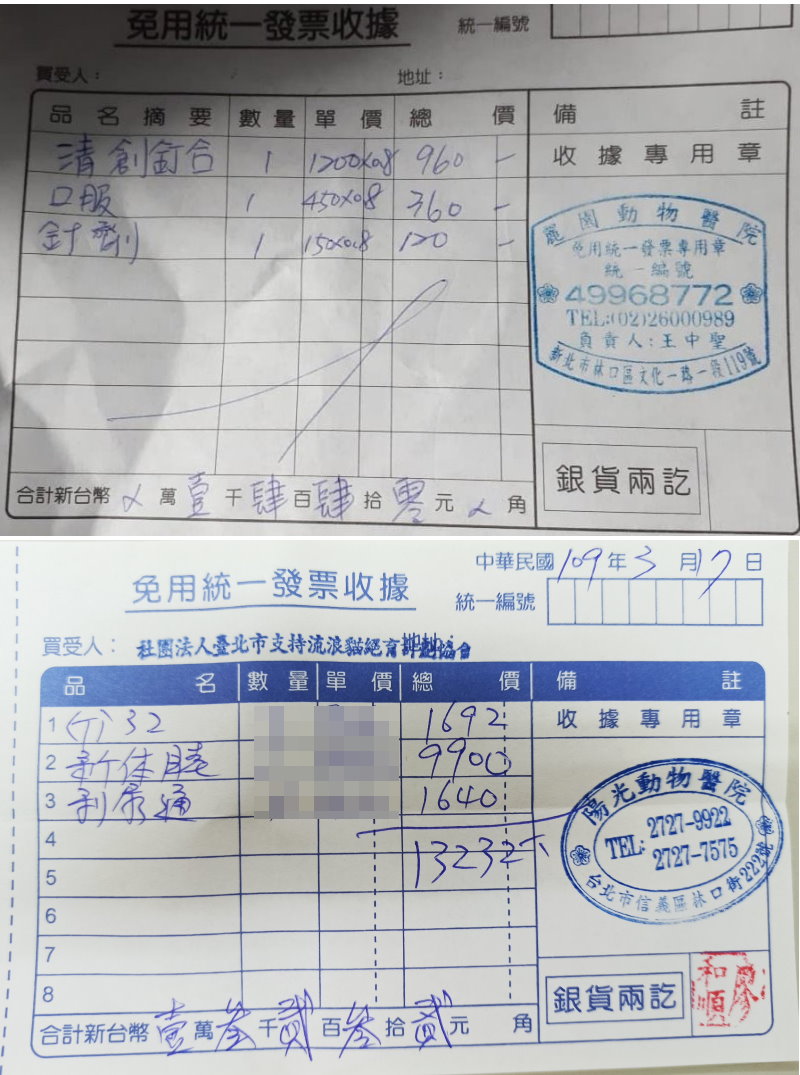 免用統一發票收據
統一編號
買受人：
地址：
品名摘要 數量 單價 總價 備註
清創釘合 1 1200x0.8 960 -
收據專用章
口服 1 450x0.8 360 -
針劑 1 150x0.8 120 -
麗園動物醫院
免用統一發票專用章
統一編號
49968772
TEL:(02)26000989
負責人:王中聖
新北市林口區文化一路一段119號
銀貨兩訖
合計新台幣 萬 壹 千 肆 百 肆 拾 零 元 角
中華民國 109 年 3 月 17 日
免用統一發票收據
統一編號
買受人：社團法人臺北市支持流浪貓絕育計劃協會
品名 數量 單價 總價 備註
1 (丁) 32 1692
收據專用章
2 新体睦 9900
3 利尿通 1640
4
5 13232
6
7
8
陽光動物醫院
TEL: 2727-9922
2727-7575
台北市信義區林口街222號
銀貨兩訖
和順
合計新台幣 壹 萬 叁 千 貳 百 叁 拾 貳 元 角